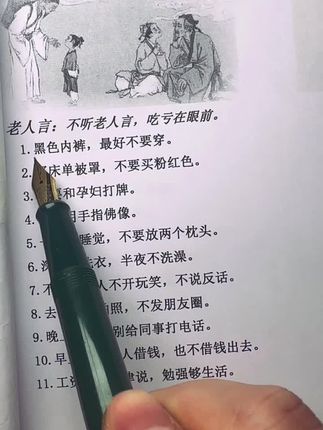 老人言：不听老人言，吃亏在眼前。
1. 黑色内裤，最好不要穿。
2. 床单被罩，不要买粉红色。
3. 和孕妇打牌。
4. 用手指佛像。
5. 睡觉，不要放两个枕头。
6. 洗衣，半夜不洗澡。
7. 不 人不开玩笑，不说反话。
8. 去 照，不发朋友圈。
9. 晚 别给同事打电话。
10. 早 人借钱，也不借钱出去。
11. 工资 说，勉强够生活。